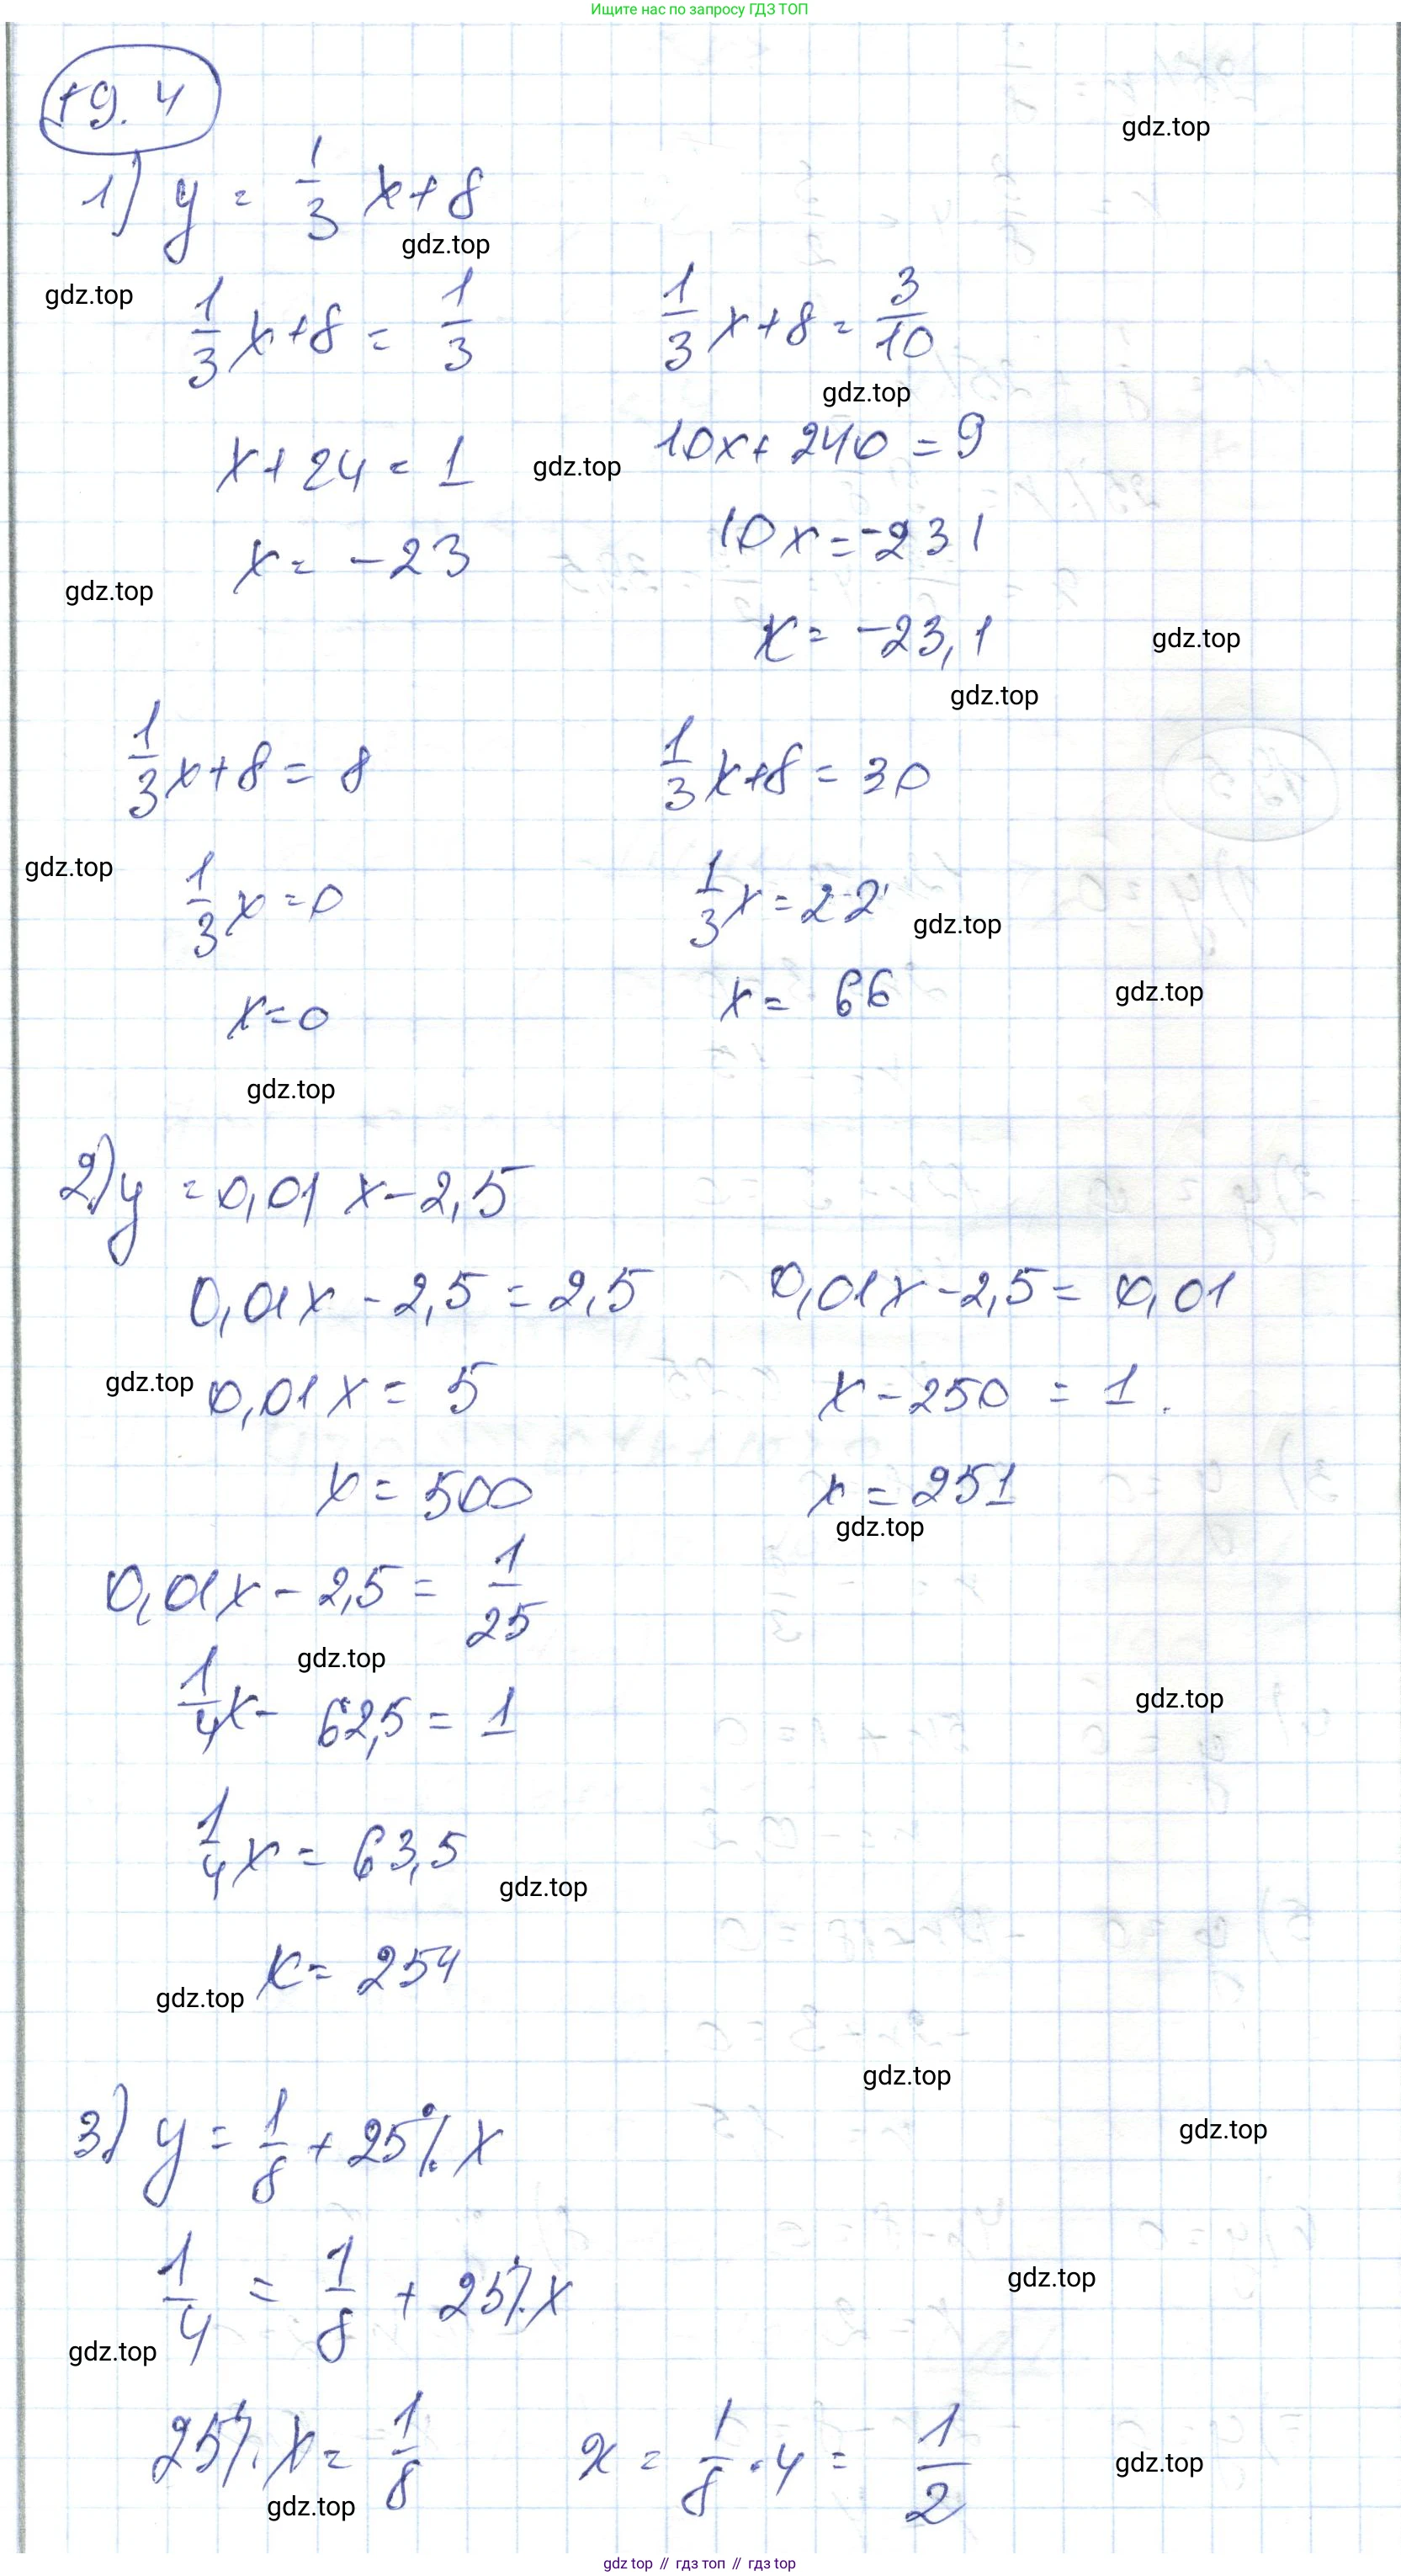 Ищите нас по запросу ГДЗ ТОП
19.4
gdz.top
1) y = 1/3 x + 8
gdz.top
gdz.top
1/3 x + 8 = 1/3    1/3 x + 8 = 3/10
gdz.top
x + 24 = 1    10x + 240 = 9
gdz.top
x = -23    10x = -231
gdz.top
x = -23,1
gdz.top
gdz.top
1/3 x + 8 = 8    1/3 x + 8 = 30
gdz.top
1/3 x = 0    1/3 x = 22
gdz.top
x = 0    x = 66
gdz.top
gdz.top
2) y = 0,01 x - 2,5
0,01x - 2,5 = 2,5    0,01x - 2,5 = 0,01
gdz.top
0,01 x = 5    x - 250 = 1.
x = 500    x = 251
gdz.top
0,01x - 2,5 = 1/25
gdz.top
1/4 x - 62,5 = 1
gdz.top
1/4 x = 63,5
gdz.top
x = 254
gdz.top
gdz.top
3) y = 1/8 + 25% x
gdz.top
1/4 = 1/8 + 25% x
gdz.top
gdz.top
25% x = 1/8    x = 1/8 · 4 = 1/2
gdz.top
gdz.top
gdz top // гдз топ // gdz top